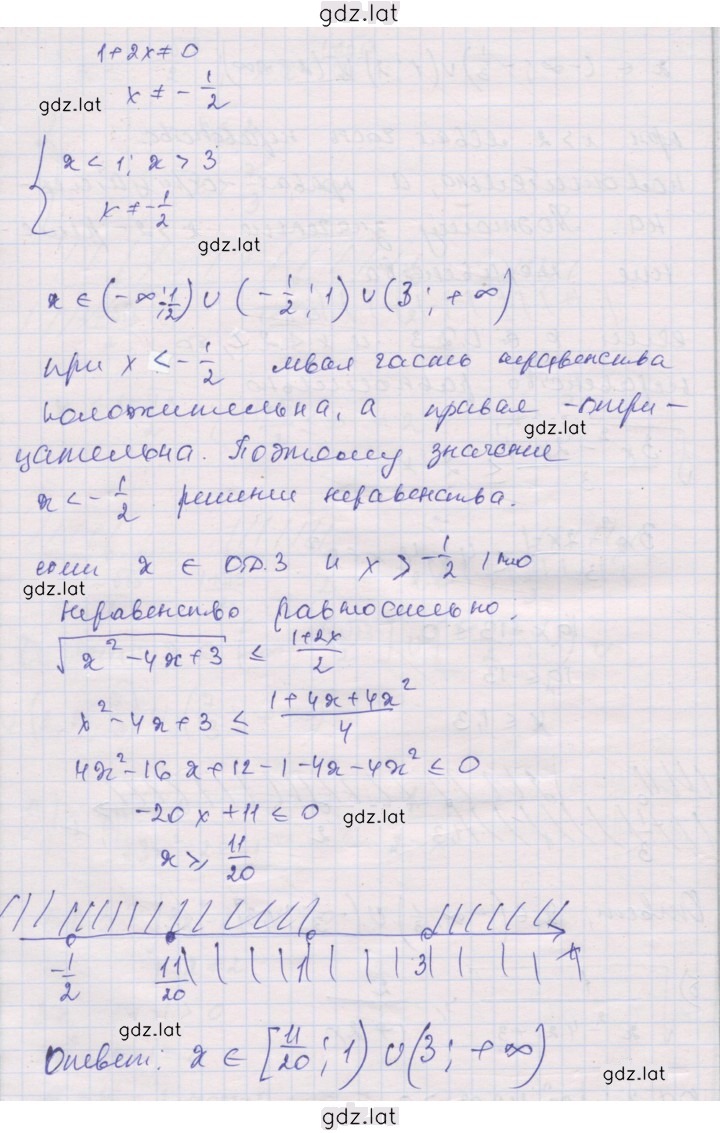 gdz.lat
1+2x≠0
gdz.lat
x ≠ -1/2
{ x < 1; x > 3
x ≠ -1/2
gdz.lat
x ∈ (-∞; -1/2) ∪ (-1/2; 1) ∪ (3; +∞)
при x < -1/2 левая часть неравенства
положительна, а правая -отри-
gdz.lat
цательна. Поэтому значение
x < -1/2 решение неравенства.
если x ∈ О.Д.З и x > -1/2, то
gdz.lat
неравенство равносильно.
√(x²-4x+3) ≤ (1+2x)/2
x²-4x+3 ≤ (1+4x+4x²)/4
4x²-16x+12-1-4x-4x² ≤ 0
-20x+11 ≤ 0
gdz.lat
x ≥ 11/20
-1/2 11/20 1 3 x
gdz.lat
Ответ: x ∈ [11/20; 1) ∪ (3; +∞)
gdz.lat
gdz.lat